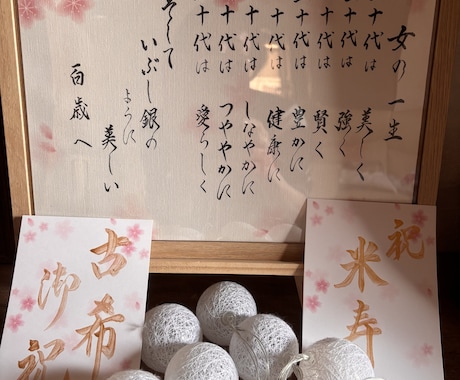 女の一生
十代は 美しく
十代は 強く
十代は 賢く
十代は 豊かに
十代は 健康に
十代は しなやかに
十代は つややかに
十代は 愛らしく
そして
いぶし銀の
ように
美しい
百歳へ
祝
米寿
古希
御祝